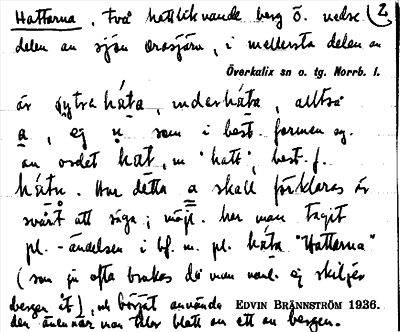 Hattarna, två hattliknande berg ö. nedre (2
delen av sjön Orasjärvi, i mellersta delen av
Överkalix sn o. tg. Norrb. l.
är ýtra háta, inderháta, alltså
a, ej u som i best. formen sg.
av ordet hat, m "hatt", best. f.
hátn. Hur detta a skall förklaras är
svårt att säga; möjl. har man tagit
pl. -ändelsen i bf. m. pl. háta "Hattarna"
(som ju ofta brukas då man vanl. ej skiljer
bergen åt), och börjat använda EDVIN BRÄNNSTRÖM 1936.
den även när man talar blott om ett av bergen.